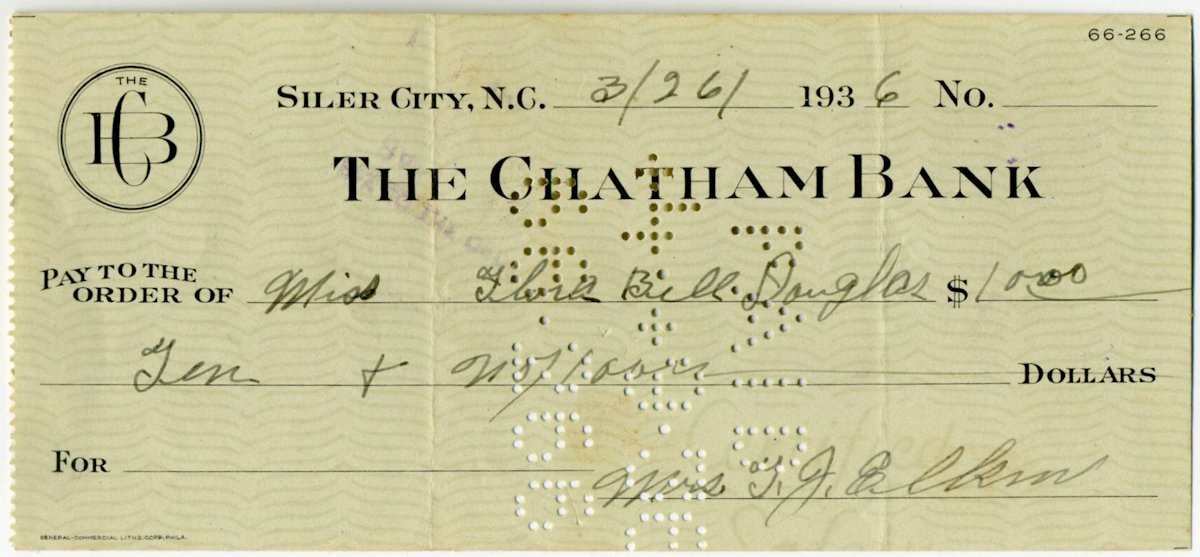 66-266
THE
CB
SILER CITY, N.C. 3/26/ 1936 No.
THE CHATHAM BANK
PAY TO THE
ORDER OF Miss Flora Bell Douglas $10.00
Ten & no/100
DOLLARS
FOR
Mrs. T. J. Elkins
GENERAL-COMMERCIAL LITHO. CORP. PHILA.